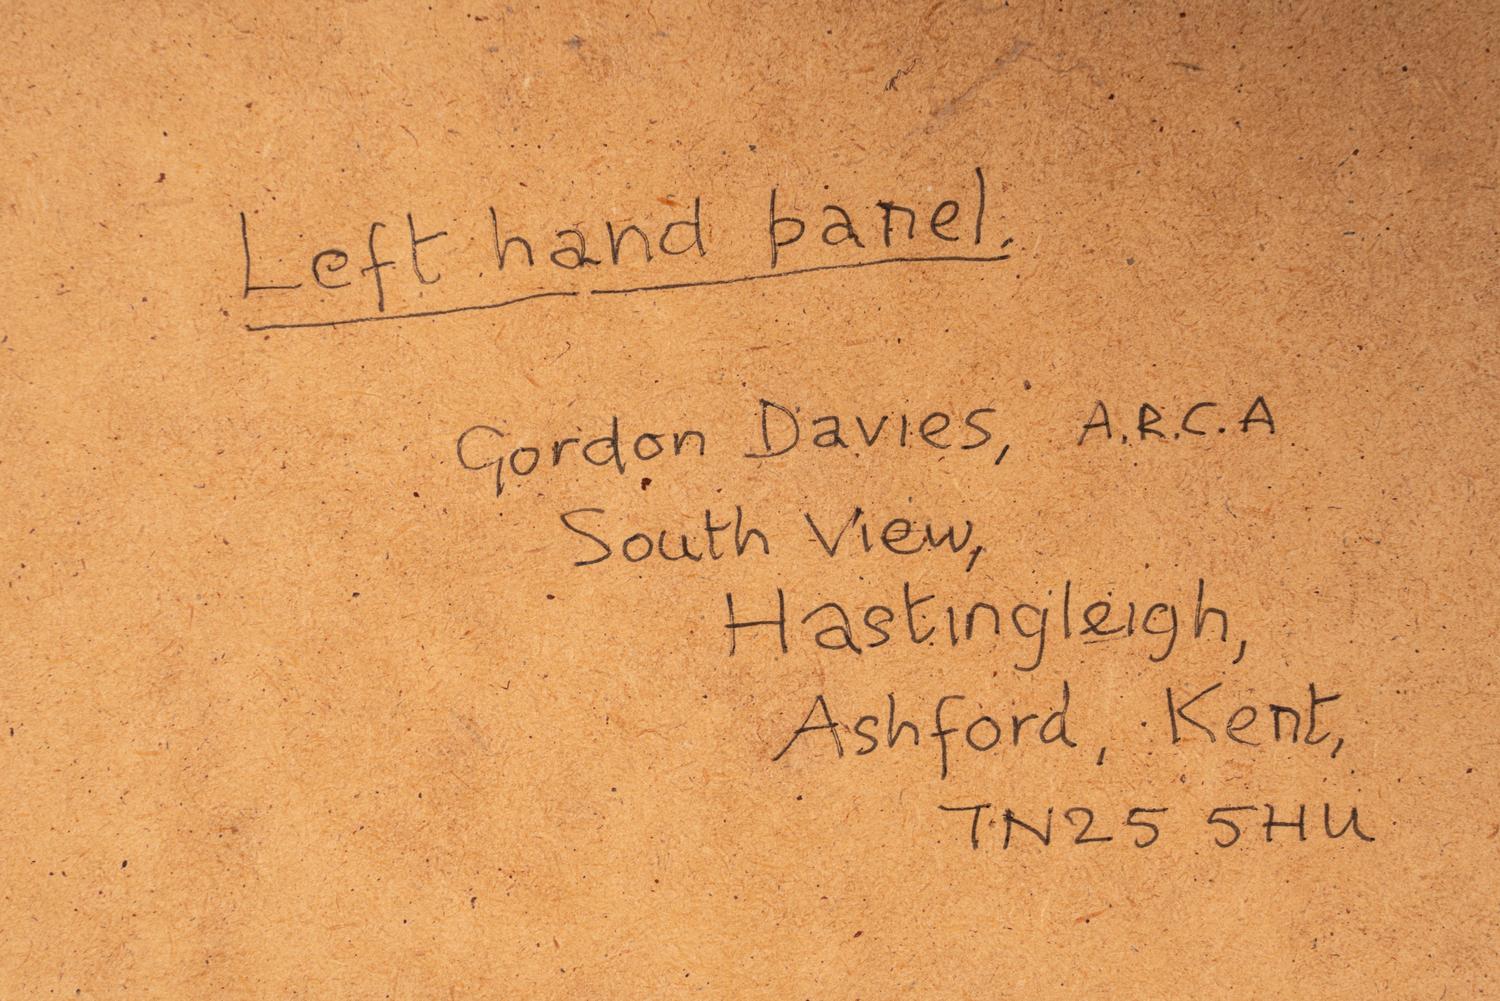 Left hand panel.
Gordon Davies, A.R.C.A
South View,
Hastingleigh,
Ashford, Kent,
TN25 5HU